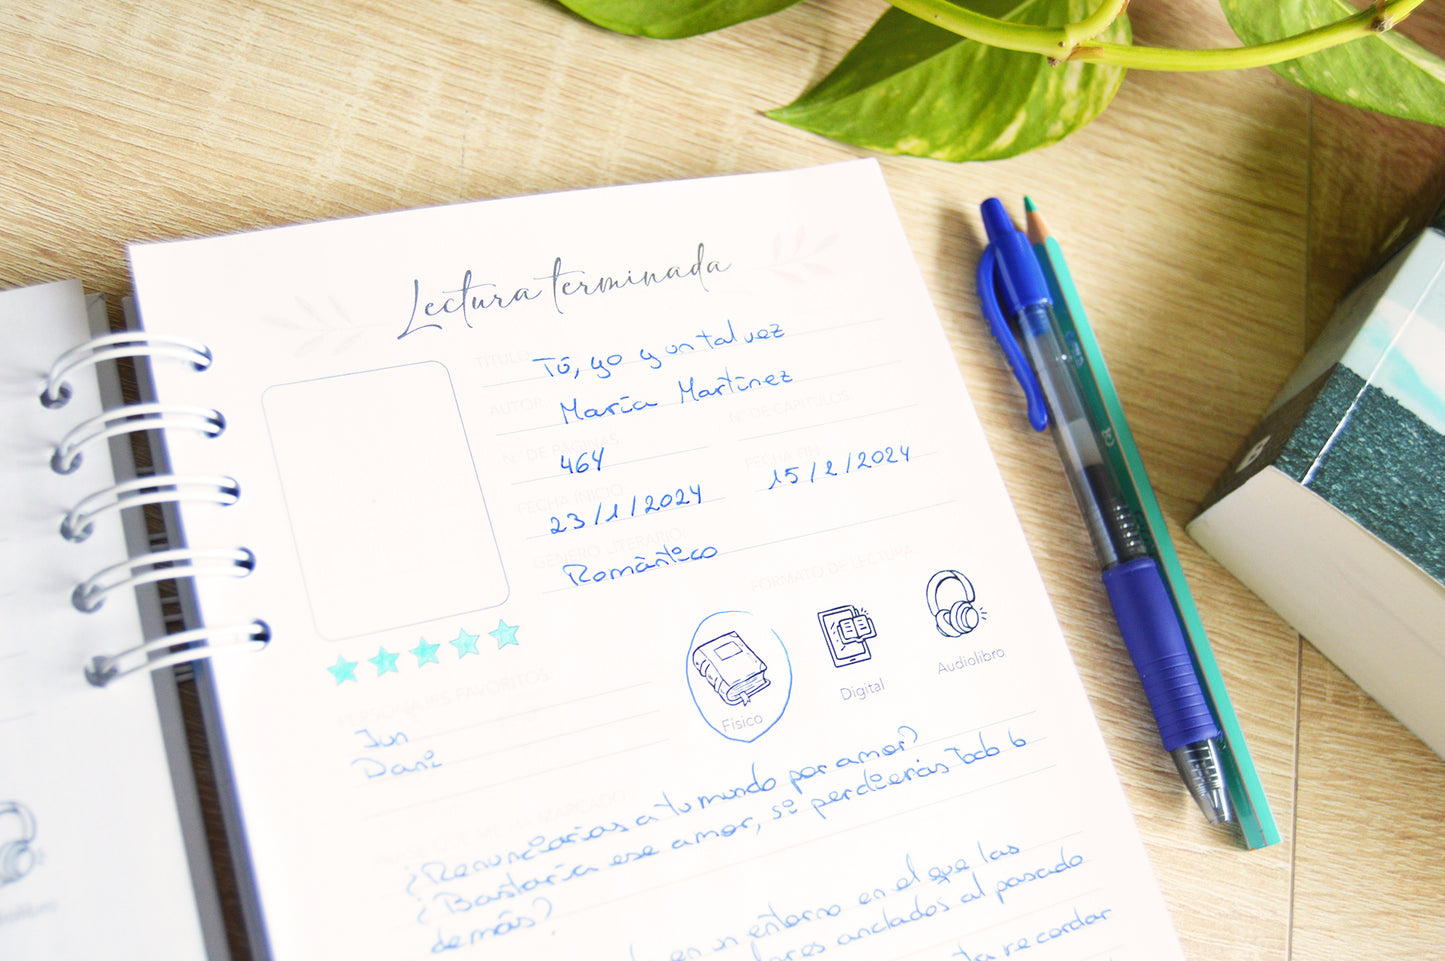 Lectura terminada
TITULO:
Tú, yo y un tal vez
AUTOR:
María Martínez
Nº DE PÁGINAS:
464
Nº DE CAPITULOS:
FECHA INICIO:
23/1/2024
FECHA FIN:
15/2/2024
GÉNERO LITERARIO:
Romántico
FORMATO DE LECTURA
Físico
Digital
Audiolibro
PERSONAJES FAVORITOS:
Jun
Dani
¿Renunciarías a tu mundo por amor?
¿Bastaría ese amor, si perdieras todo lo
demás?
en un entorno en el que las
anclados al pasado
recordar